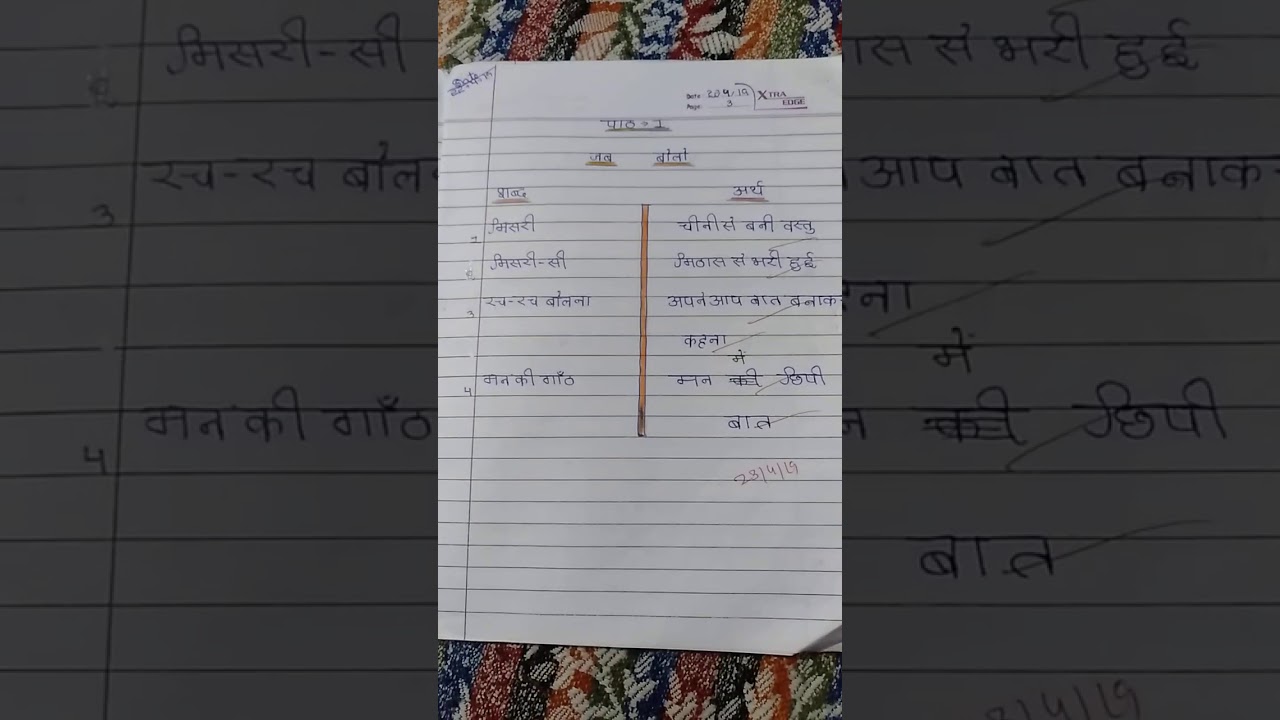 Date: 20 4/19
Page: 3
XTRA EDGE
पाठ - 1
जब बोलो
शब्द अर्थ
1 मिसरी चीनी से बनी वस्तु
2 मिसरी-सी मिठास से भरी हुई
3 रच-रच बोलना अपने आप बात बनाक
कहना
में
4 मन की गाँठ मन छिपी
बात
23/4/19